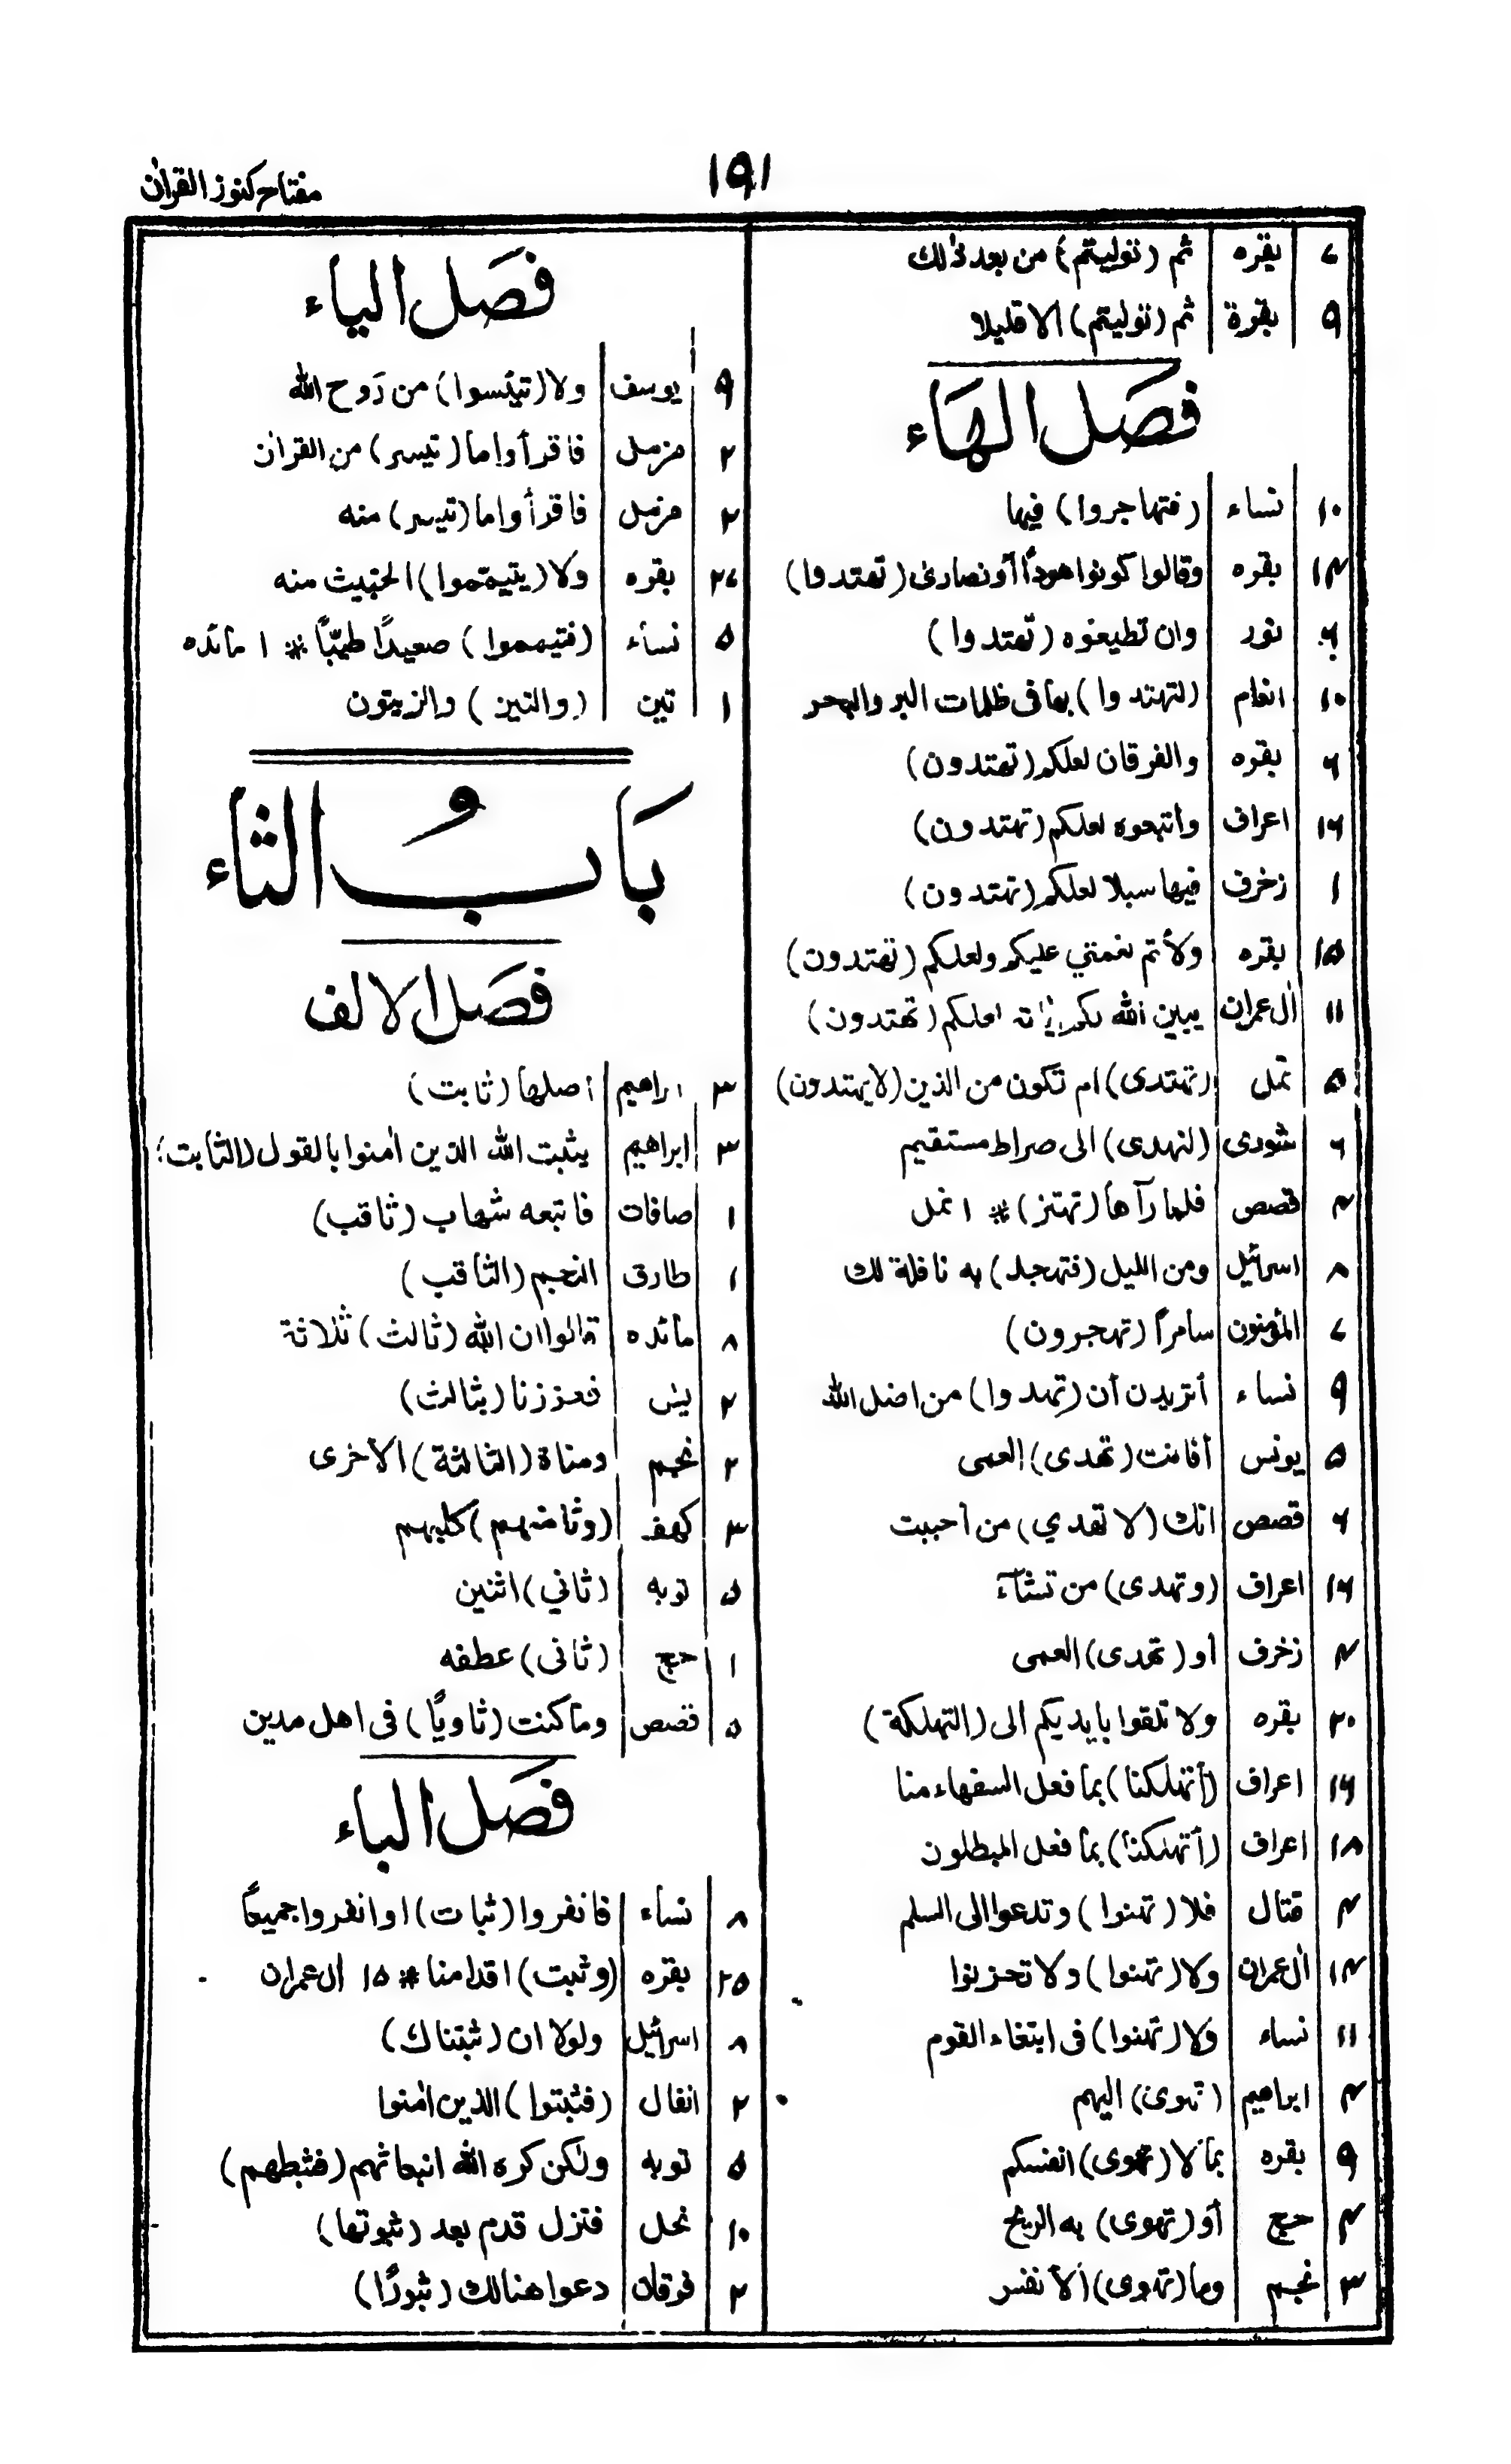 مفتاح كنوز القرآن
١٩١
٧ بقره ثم (توليتم) من بعد ذٰلك
٩ بقرة ثم (توليتم) الا قليلا
فصل الهاء
١٠ نساء (فتهاجروا) فيها
١٤ بقره وقالوا كونوا هودًا أو نصارىٰ (تهتدوا)
٦ نور وان تطيعوه (تهتدوا)
١٠ انعام (لتهتدوا) بها فى ظلمات البر والبحر
٦ بقره والفرقان لعلكم (تهتدون)
١٦ اعراف واتبعوه لعلكم (تهتدون)
١ زخرف فيها سبلا لعلكم (تهتدون)
١٥ بقره ولأتم نعمتي عليكم ولعلكم (تهتدون)
١١ اٰل عمران يبين الله لكم اٰياته لعلكم (تهتدون)
٥ نمل (تهتدى) ام تكون من الذين (لا يهتدون)
٦ شورى (لتهدى) الى صراط مستقيم
٤ قصص فلما رآها (تهتز) * ١ نمل
٨ اسرائيل ومن الليل (فتهجد) به نافلة لك
٧ المؤمنون سامرًا (تهجرون)
٩ نساء أتريدون أن (تهدوا) من اضل الله
٥ يونس أفانت (تهدى) العمى
٦ قصص انك (لا تهدي) من أحببت
١٦ اعراف (وتهدى) من تشآء
٤ زخرف أو (تهدى) العمى
٢٠ بقره ولا تلقوا بايديكم الى (التهلكة)
١٦ اعراف (أتهلكنا) بما فعل السفهاء منا
١٨ اعراف (أتهلكنا) بما فعل المبطلون
٤ قتال فلا (تهنوا) وتدعوا الى السلم
١٤ اٰل عمران ولا (تهنوا) ولا تحزنوا
١١ نساء ولا (تهنوا) فى ابتغاء القوم
٤ ابراهيم (تهوى) اليهم
٩ بقره بما لا (تهوى) انفسكم
٤ حج أو (تهوى) به الريح
٣ نجم وما (تهوى) الأنفس
فصل الياء
٩ يوسف ولا (تيئسوا) من روح الله
٢ مزمل فاقرأوا ما (تيسر) من القراٰن
٢ مزمل فاقرأوا ما (تيسر) منه
٢٧ بقره ولا (يتيمموا) الخبيث منه
٥ نساء (فتيمموا) صعيدًا طيبًا * ١ مائده
١ تين (والتين) والزيتون
باب الثاء
فصل الالف
٣ ابراهيم أصلها (ثابت)
٣ ابراهيم يثبت الله الذين اٰمنوا بالقول (الثابت)
١ صافات فاتبعه شهاب (ثاقب)
١ طارق النجم (الثاقب)
٨ مائده قالوا ان الله (ثالث) ثلاثة
٢ يٰس فعززنا (بثالث)
٢ نجم ومناة (الثالثة) الأخرى
٣ كهف (وثامنهم) كلبهم
٥ توبه (ثاني) اثنين
١ حج (ثانى) عطفه
٥ قصص وما كنت (ثاويًا) فى اهل مدين
فصل الباء
٨ نساء فانفروا (ثبات) او انفروا جميعًا
٢٥ بقره (وثبت) اقدامنا * ١٥ اٰل عمران
٨ اسرائيل ولولا ان (ثبتناك)
٢ انفال (فثبتوا) الذين اٰمنوا
٥ توبه ولكن كره الله انبعاثهم (فثبطهم)
١٠ نحل فتزل قدم بعد (ثبوتها)
٢ فرقان دعوا هنالك (ثبورًا)